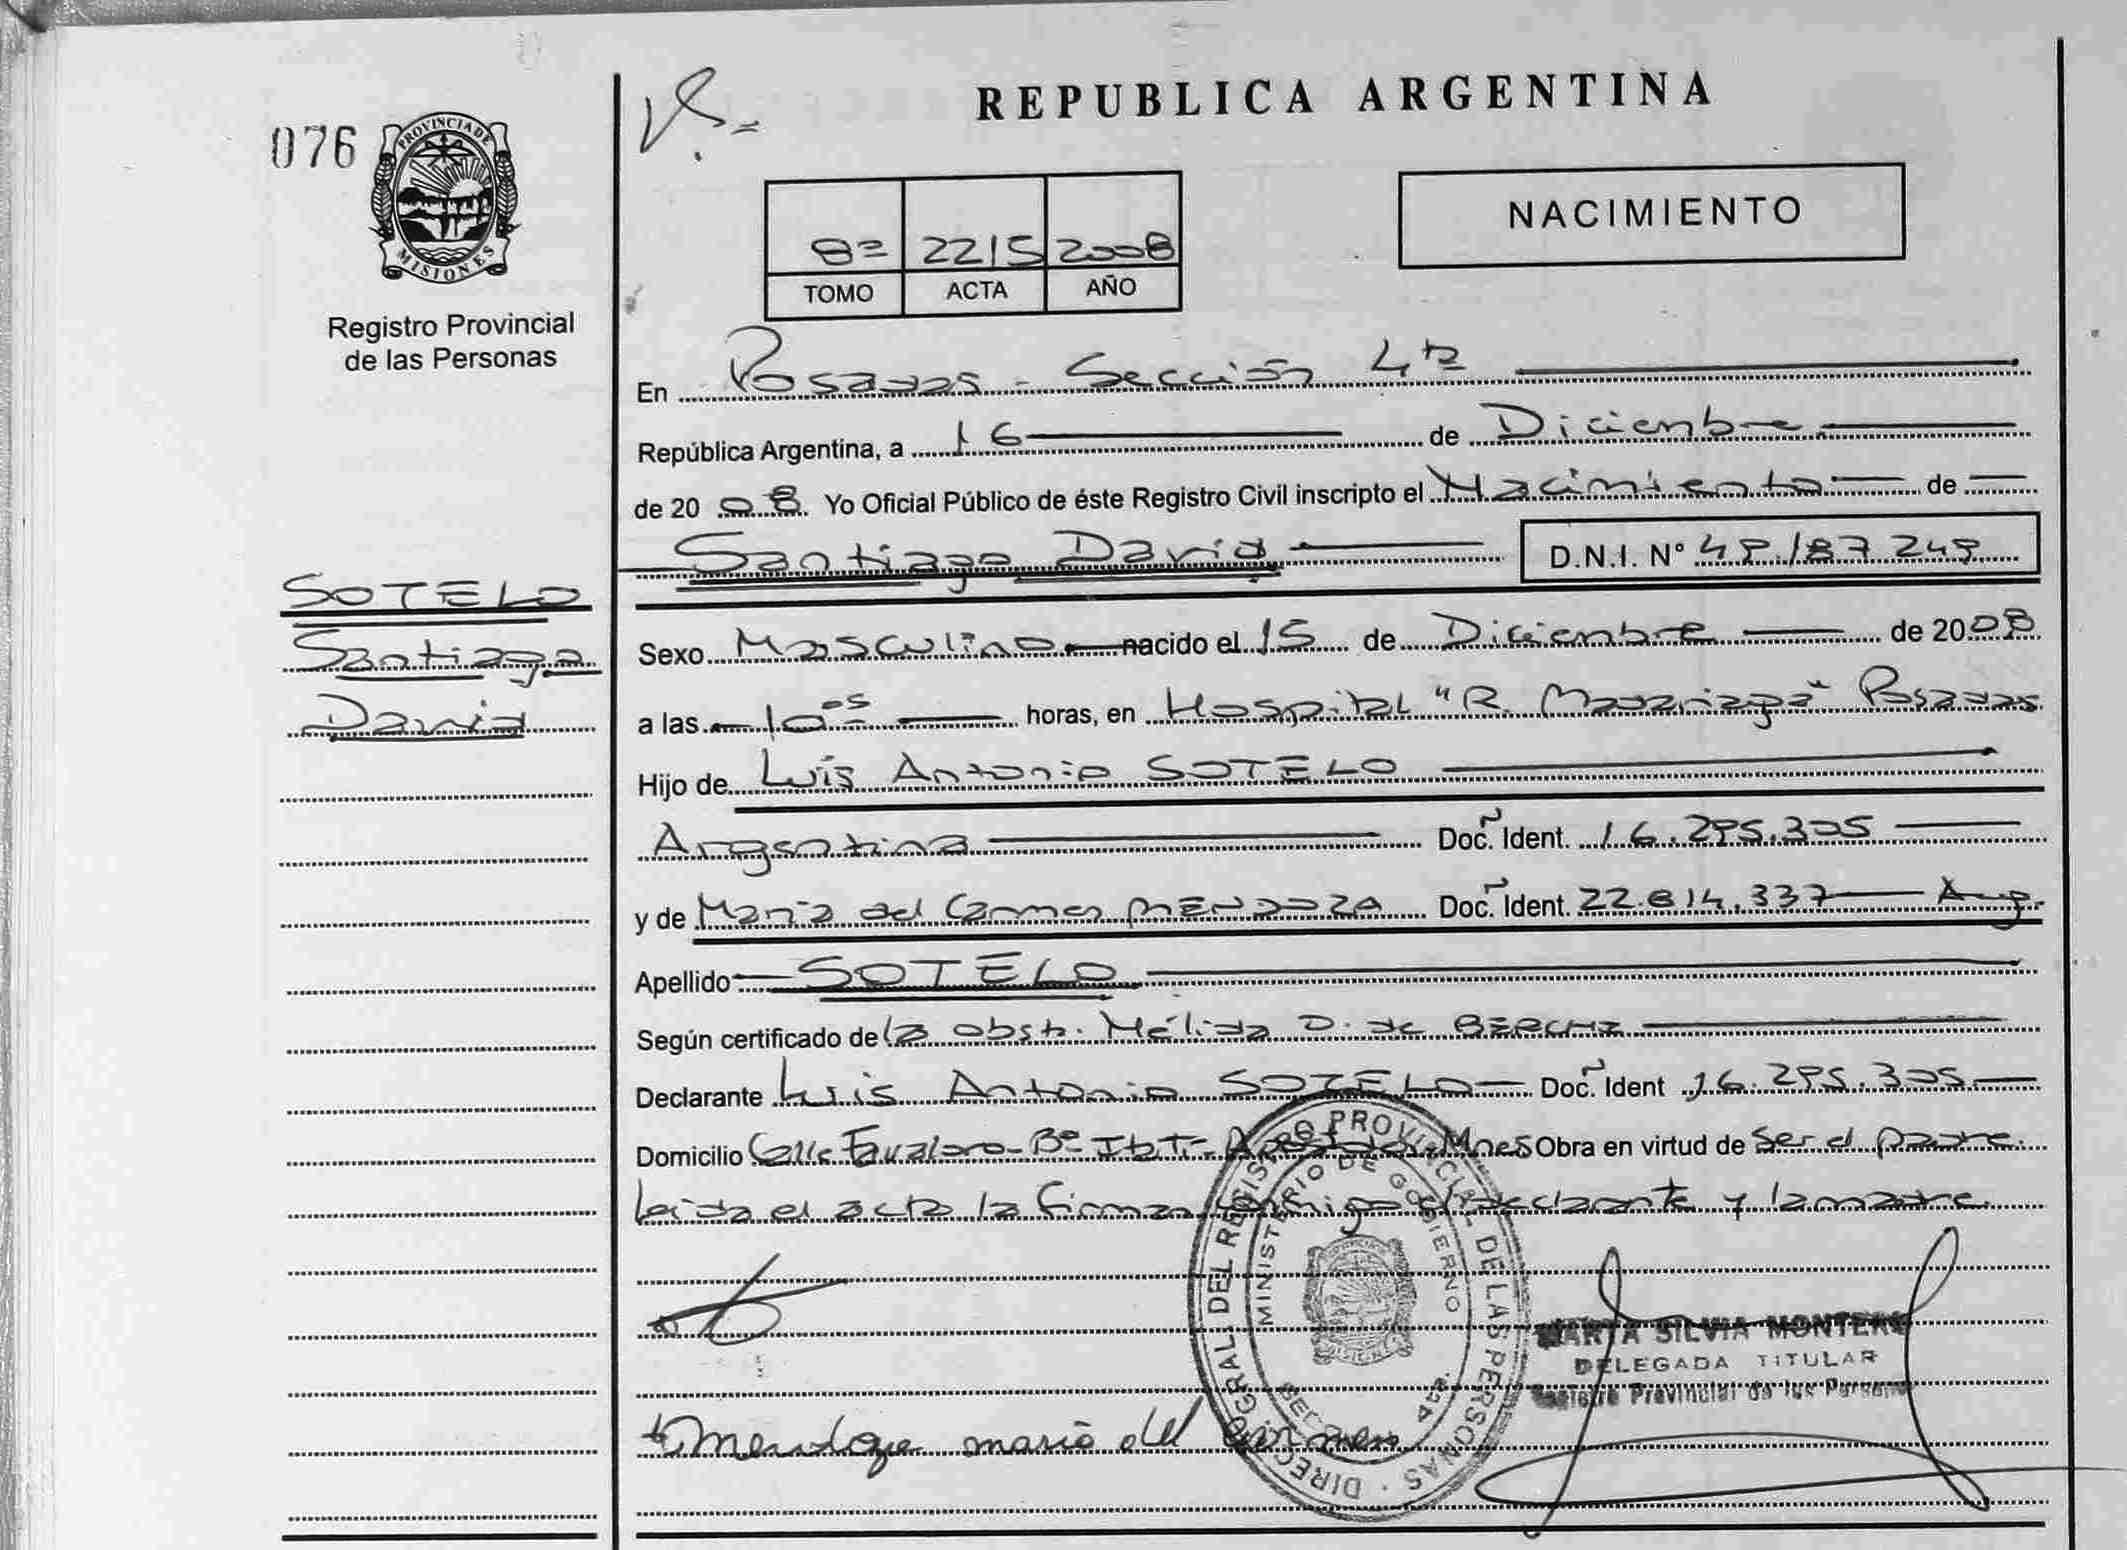 REPUBLICA ARGENTINA
076
PROVINCIA DE
MISIONES
Registro Provincial
de las Personas
8º 2215 2008
TOMO ACTA AÑO
NACIMIENTO
En Posadas - Sección 4ta
República Argentina, a 16 de Diciembre
de 2008. Yo Oficial Público de éste Registro Civil inscripto el Nacimiento de
Santiago David D.N.I. Nº 49.187.249
SOTELO
Santiago
David
Sexo Masculino nacido el 15 de Diciembre de 2008
a las 10 05 horas, en Hospital "R. Madariaga" Posadas
Hijo de Luis Antonio SOTELO
Argentina Doc. Ident. 16.295.305
y de María del Carmen MENDOZA Doc. Ident. 22.814.337 Arg.
Apellido SOTELO
Según certificado de la obst. Nélida D. de
Declarante Luis Antonio SOTELO Doc. Ident 16.295.305
Domicilio Calle Favaloro - Bº Mnes Obra en virtud de ser el padre.
Leída el acta la firman conmigo el declarante y la madre.
DIREC. GRAL. DEL REGISTRO PROVINCIAL DE LAS PERSONAS
MINISTERIO DE GOBIERNO
MARTA SILVIA MONTERO
DELEGADA TITULAR
Registro Provincial de las Personas
Mendoza maria del Carmen